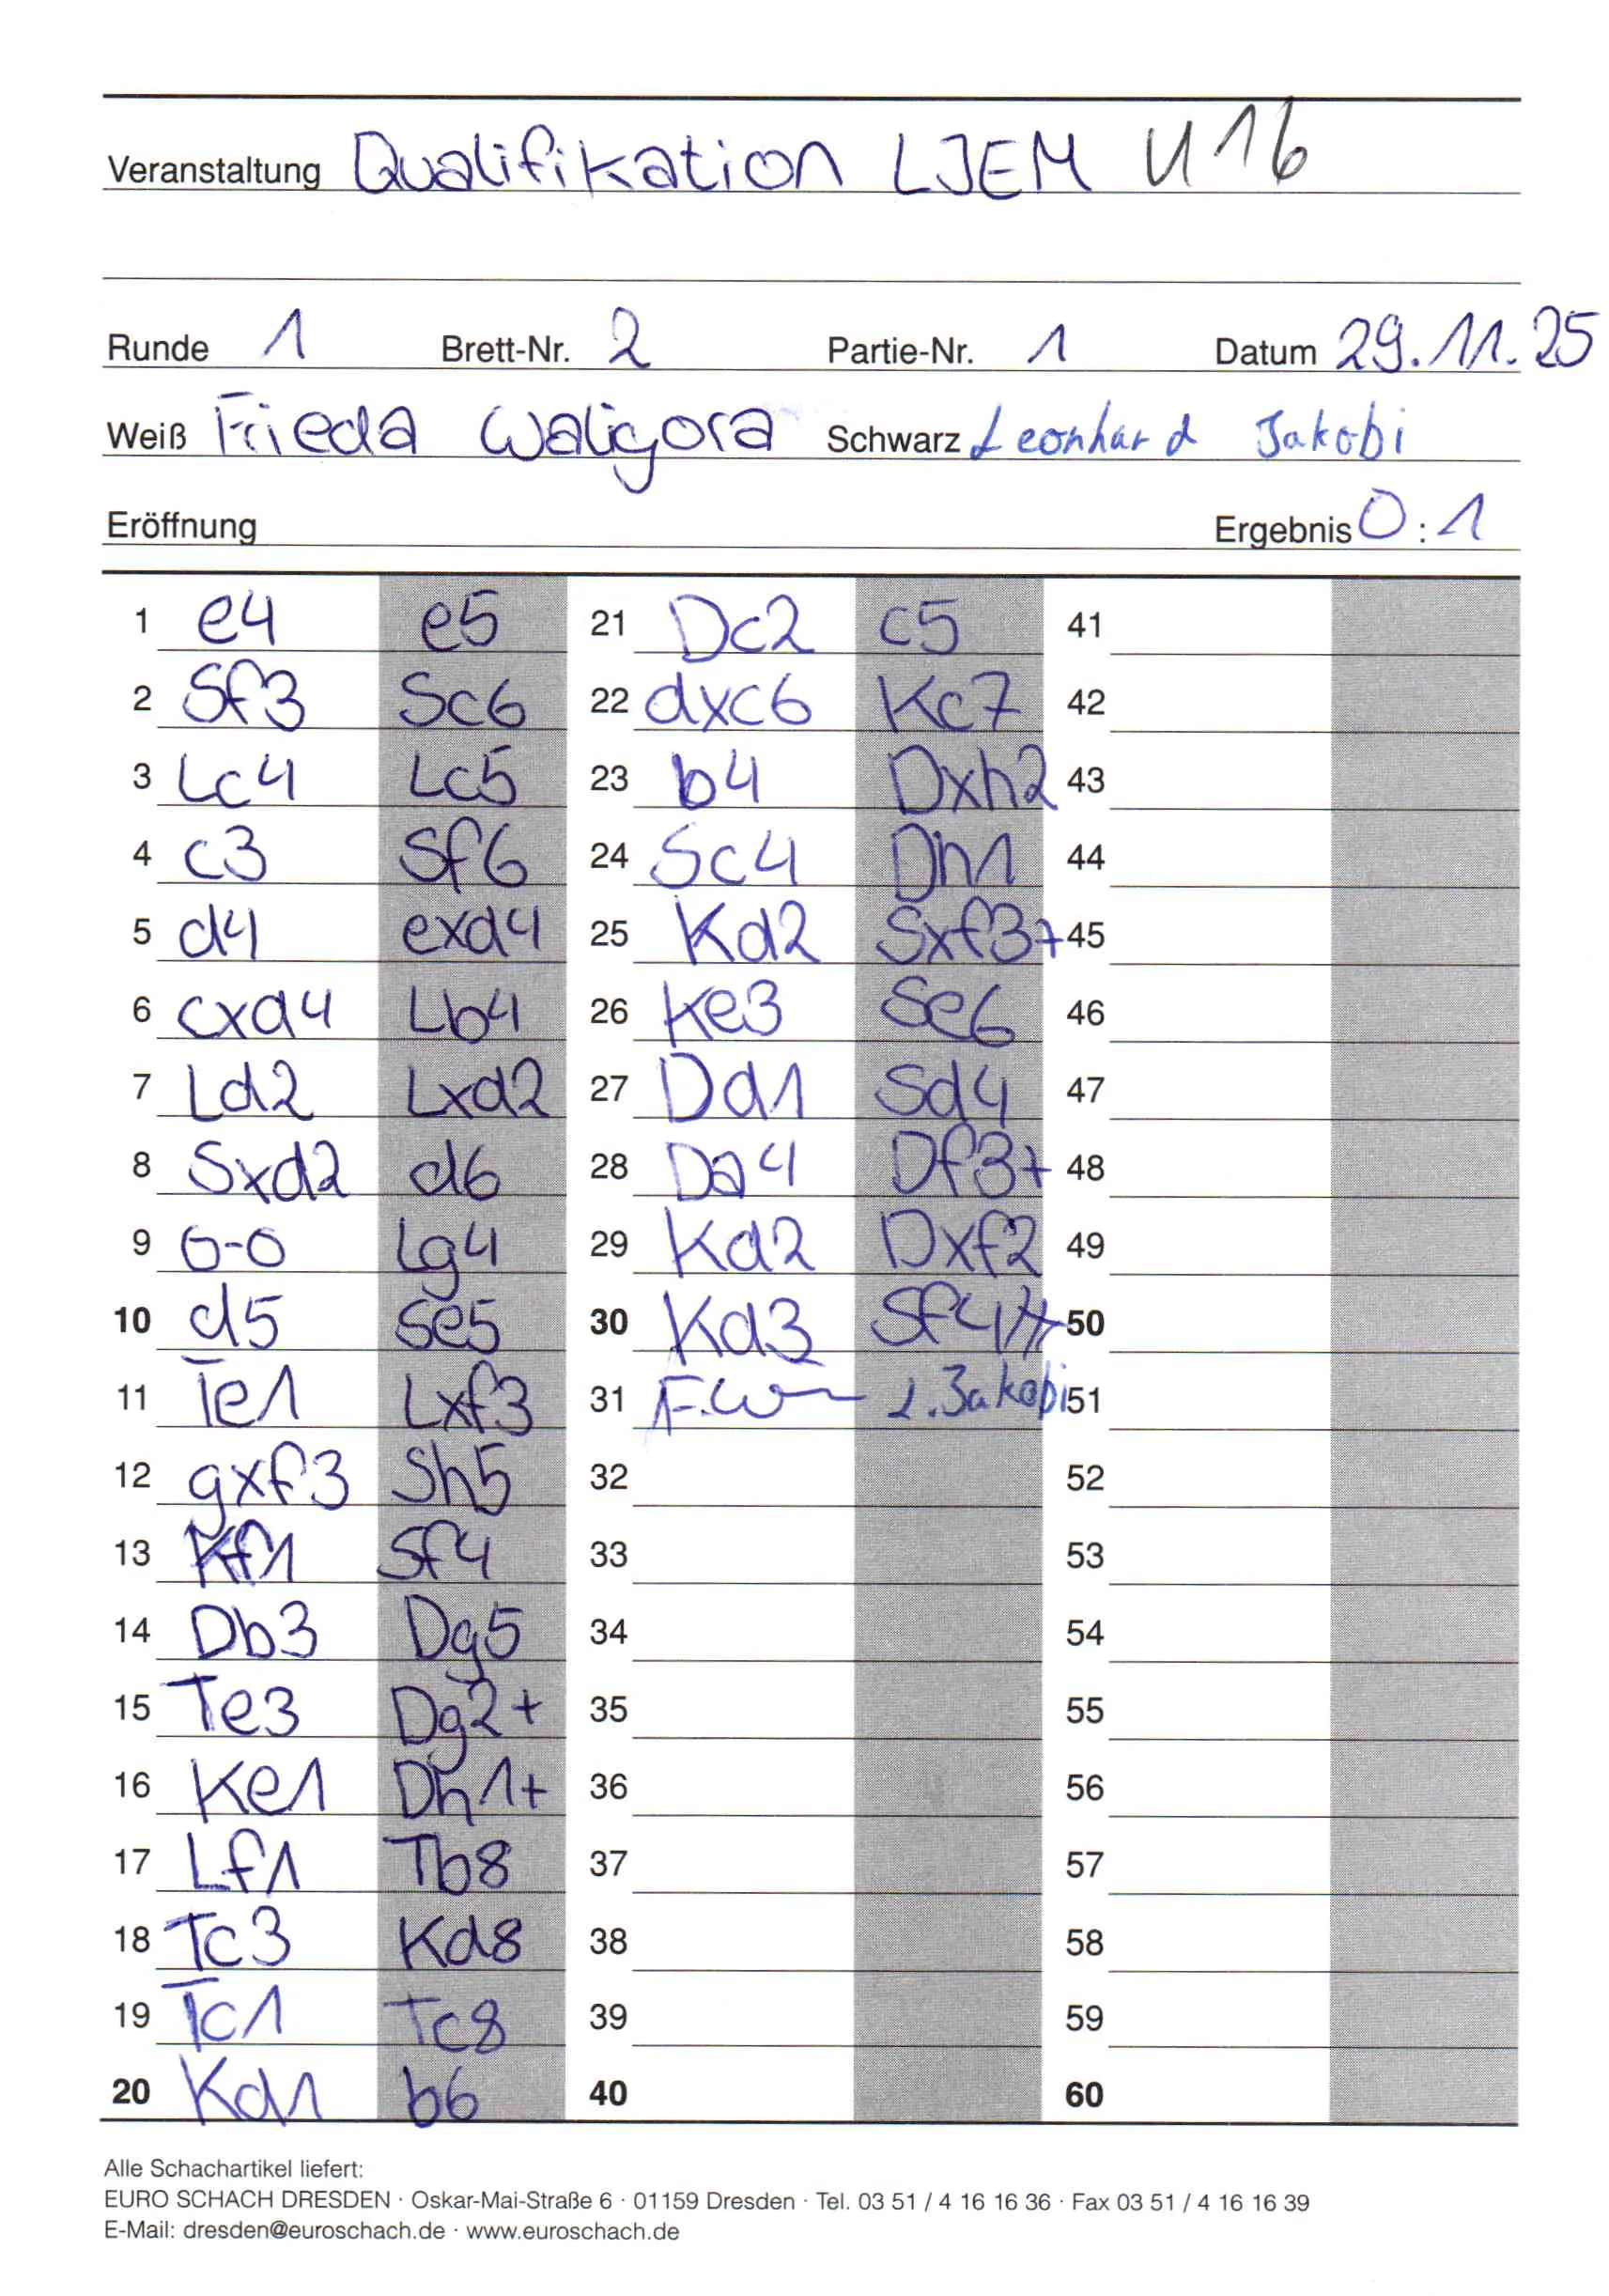 Veranstaltung Qualifikation LJEM U16
Runde 1 Brett-Nr. 2 Partie-Nr. 1 Datum 29.11.25
Weiß Frieda Waligora Schwarz Leonhard Jakobi
Eröffnung Ergebnis 0:1
1 e4 e5 21 Dc2 c5 41
2 Sf3 Sc6 22 dxc6 Kc7 42
3 Lc4 Lc5 23 b4 Dxh2 43
4 c3 Sf6 24 Sc4 Dh1 44
5 d4 exd4 25 Kd2 Sxf3+ 45
6 cxd4 Lb4 26 Ke3 Se6 46
7 Ld2 Lxd2 27 Dd1 Sd4 47
8 Sxd2 d6 28 Da4 Df3+ 48
9 0-0 Lg4 29 Kd2 Dxf2 49
10 d5 Se5 30 Kd3 Sf4# 50
11 Te1 Lxf3 31 F.W L.Jakobi 51
12 gxf3 Sh5 32 52
13 Kf1 Sf4 33 53
14 Db3 Dg5 34 54
15 Te3 Dg2+ 35 55
16 Ke1 Dh1+ 36 56
17 Lf1 Tb8 37 57
18 Tc3 Kd8 38 58
19 Tc1 Tc8 39 59
20 Kd1 b6 40 60
Alle Schachartikel liefert:
EURO SCHACH DRESDEN · Oskar-Mai-Straße 6 · 01159 Dresden · Tel. 03 51 / 4 16 16 36 · Fax 03 51 / 4 16 16 39
E-Mail: dresden@euroschach.de · www.euroschach.de